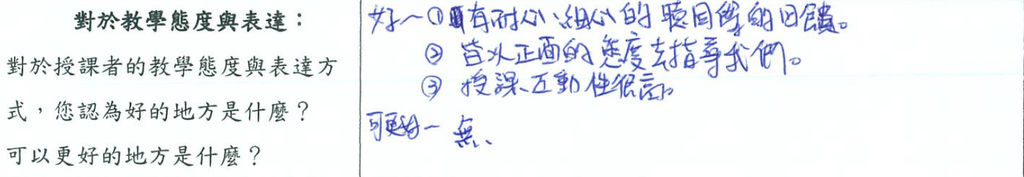 對於教學態度與表達：
對於授課者的教學態度與表達方
式，您認為好的地方是什麼？
可以更好的地方是什麼？
好～①有耐心、細心的聽同學的回饋。
② 皆以正面的態度去指導我們。
③ 授課互動性很高。
可更好－無、